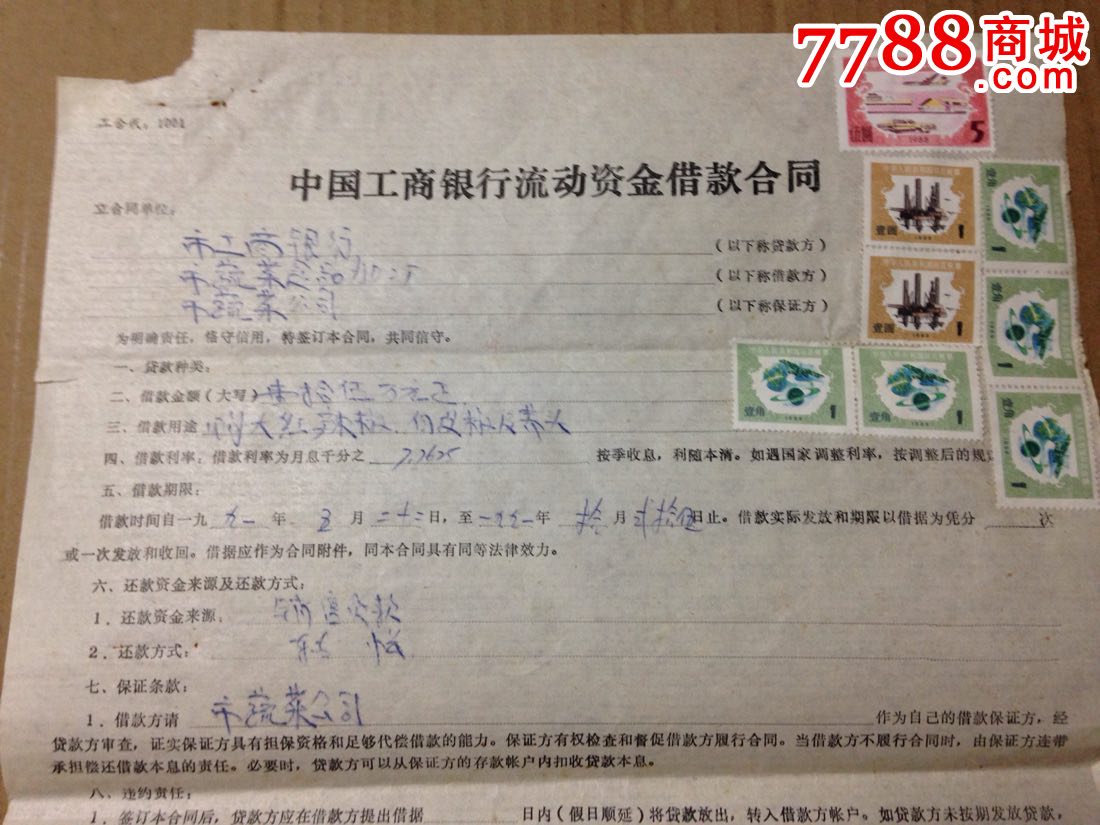 7788商城
.com
伍圆 1988 5
工合代:1001
中国工商银行流动资金借款合同
立合同单位:
市工商银行 (以下称贷款方)
市蔬菜 (以下称借款方)
市蔬菜公司 (以下称保证方)
壹圆 1988 1
壹角 1988 1
壹圆 1988 1
壹角 1988 1
为明确责任,恪守信用,特签订本合同,共同信守。
一、贷款种类:
二、借款金额(大写) 拾伍万元正
壹角 1988 1
壹角 1988 1
壹角 1988 1
三、借款用途 购大红
四、借款利率:借款利率为月息千分之 7.2625 按季收息,利随本清。如遇国家调整利率,按调整后的规定
五、借款期限:
借款时间自一九九一年五月二十二日,至一九九一年拾月贰拾伍日止。借款实际发放和期限以借据为凭分 次
或一次发放和收回。借据应作为合同附件,同本合同具有同等法律效力。
六、还款资金来源及还款方式:
1.还款资金来源: 销售货款
2.还款方式: 转帐
七、保证条款:
1.借款方请 市蔬菜公司 作为自己的借款保证方,经
贷款方审查,证实保证方具有担保资格和足够代偿借款的能力。保证方有权检查和督促借款方履行合同。当借款方不履行合同时,由保证方连带
承担偿还借款本息的责任。必要时,贷款方可以从保证方的存款帐户内扣收贷款本息。
八、违约责任:
1.签订本合同后,贷款方应在借款方提出借据 日内(假日顺延)将贷款放出,转入借款方帐户。如贷款方未按期发放贷款,